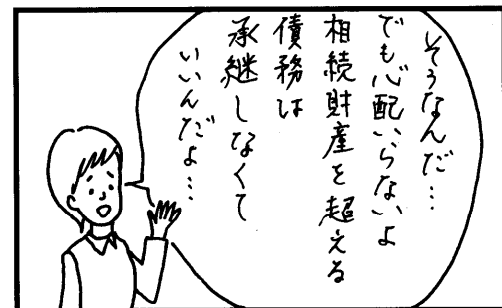 そうなんだ…
でも心配いらないよ
相続財産を超える
債務は
承継しなくて
いいんだよ…